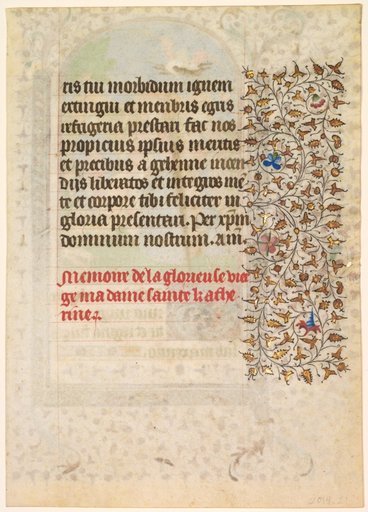 tis tui morbidum ignem
extingui et membris egris
refugeria prestari fac nos
propicius ipsius meritis
et precibus a gehenne incen
dijs liberatos et integros me
te et corpore tibi feliciter in
gloria presentari. Per xp̄m
dominum nostrum. am̄.
Memoire de la glorieuse vier
ge madame sainte kathe
rine.